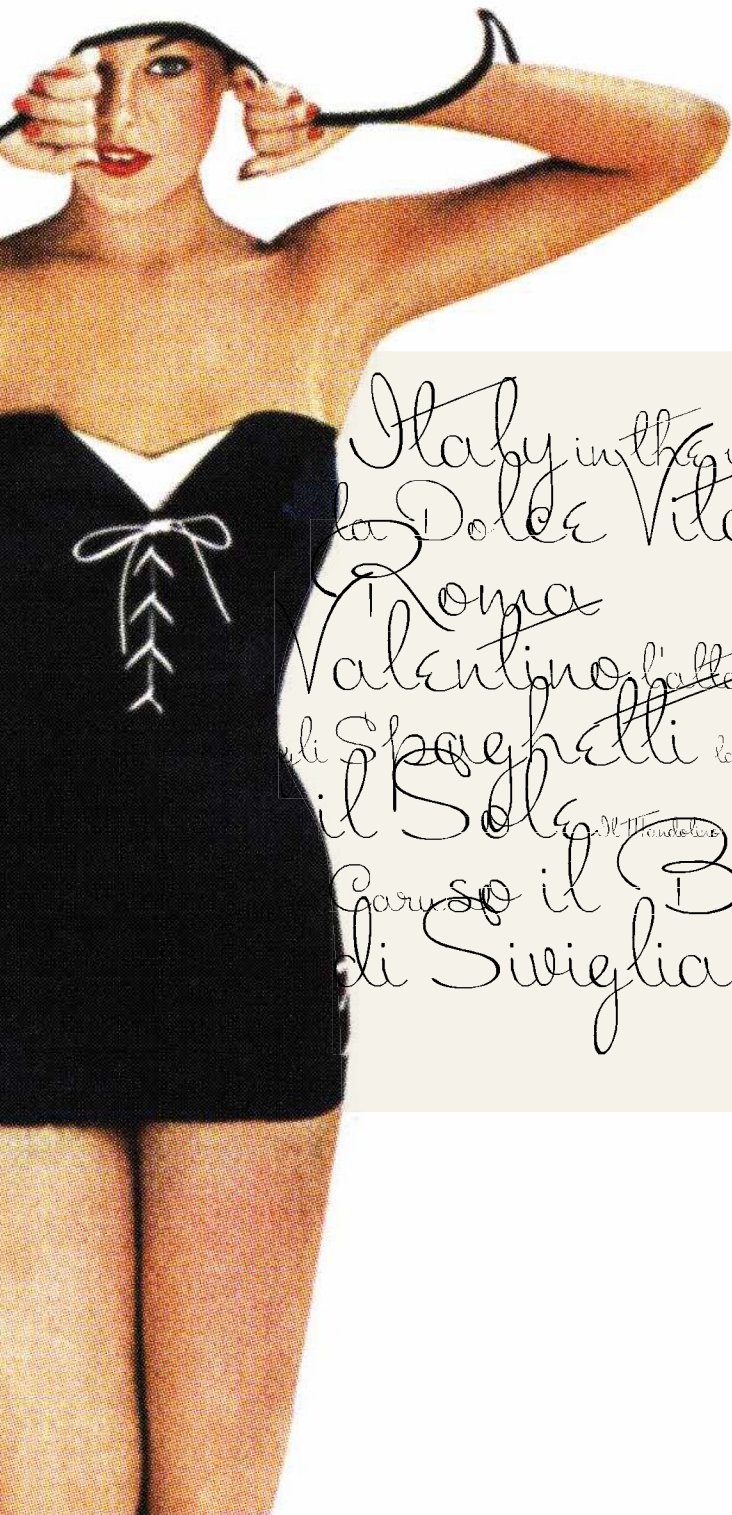 Italy in the
la Dolce Vita
Roma
Valentino
gli Spaghetti
il Sole Il Mandolino
Caruso il B
di Siviglia